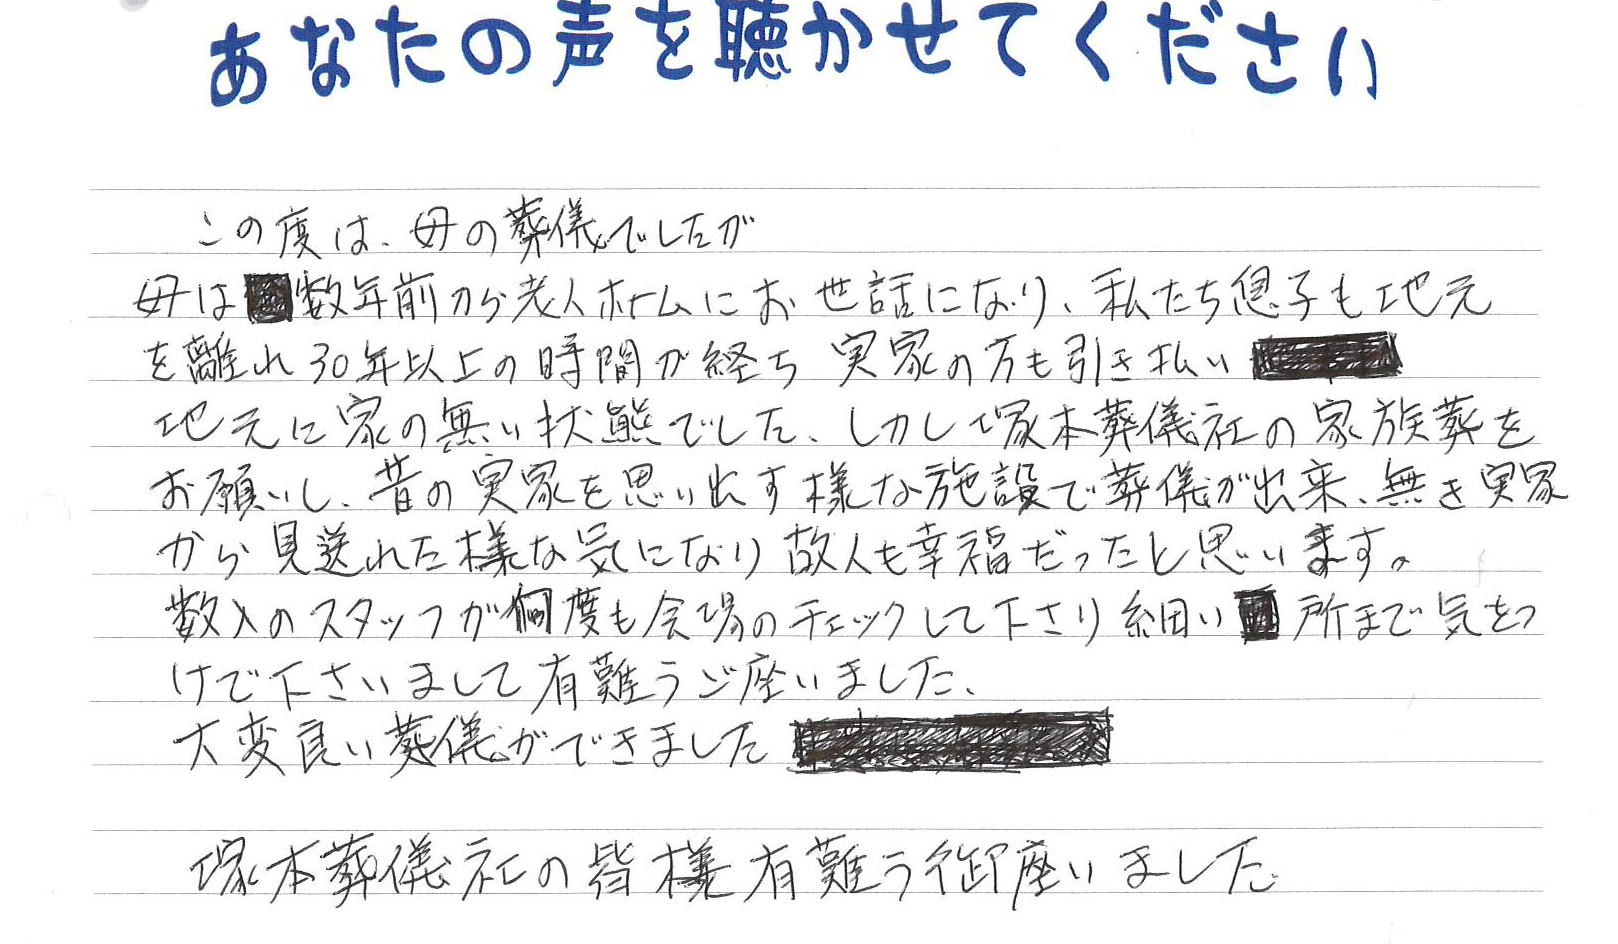 あなたの声を聴かせてください
この度は、母の葬儀でしたが
母は数年前から老人ホームにお世話になり、私たち息子も地元
を離れ30年以上の時間が経ち 実家の方も引き払い
地元に家の無い状態でした、しかし塚本葬儀社の家族葬を
お願いし、昔の実家を思い出す様な施設で葬儀が出来、無き実家
から見送れた様な気になり故人も幸福だったと思います。
数人のスタッフが何度も会場のチェックして下さり細い所まで気をつ
けて下さいまして有難うご座いました、
大変良い葬儀ができました
塚本葬儀社の皆様有難う御座いました